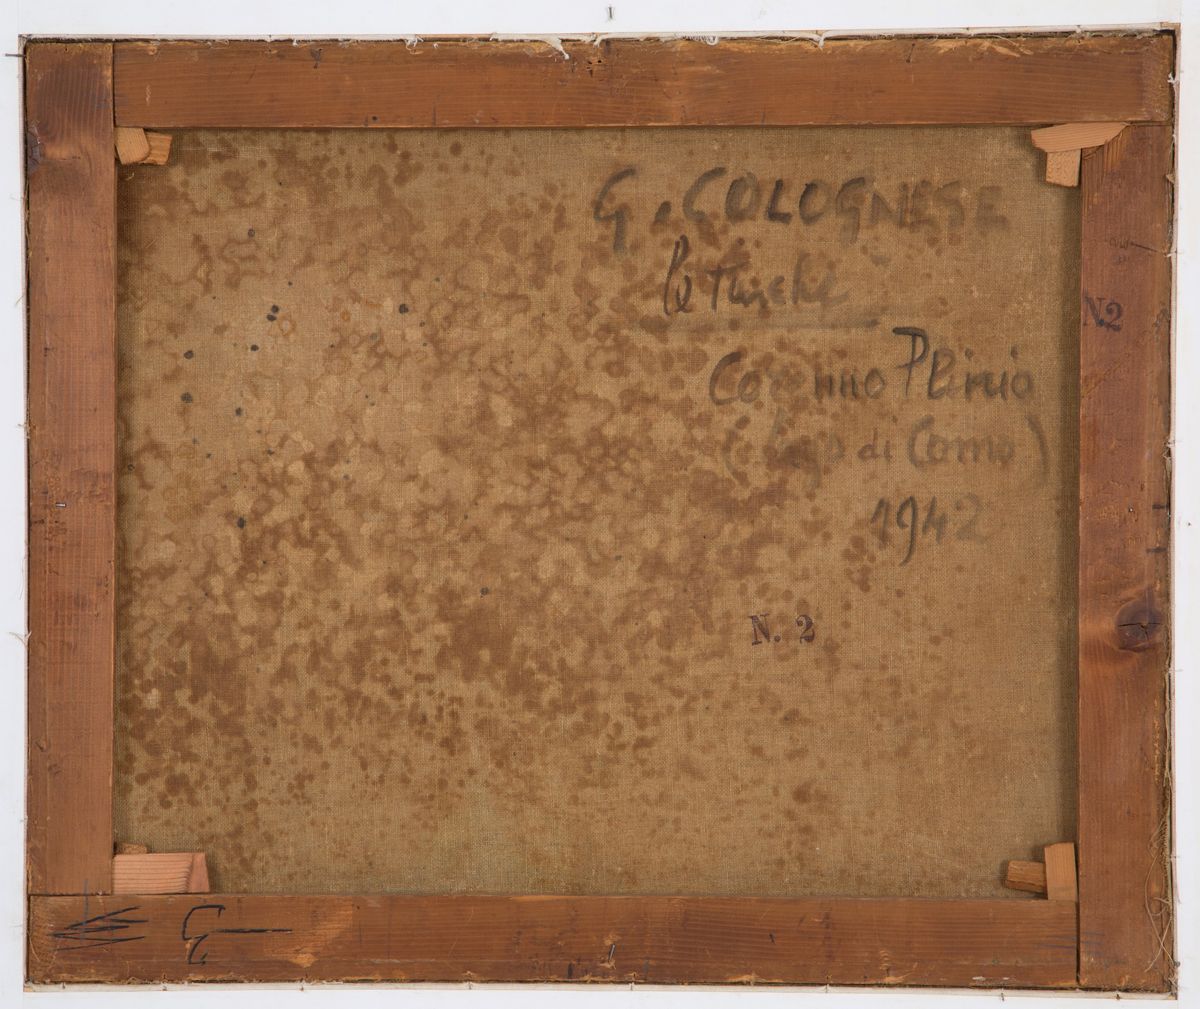 G. COLOGNESE
le
Corenno Plinio
(Lago di Como)
1942
N.2
N. 2